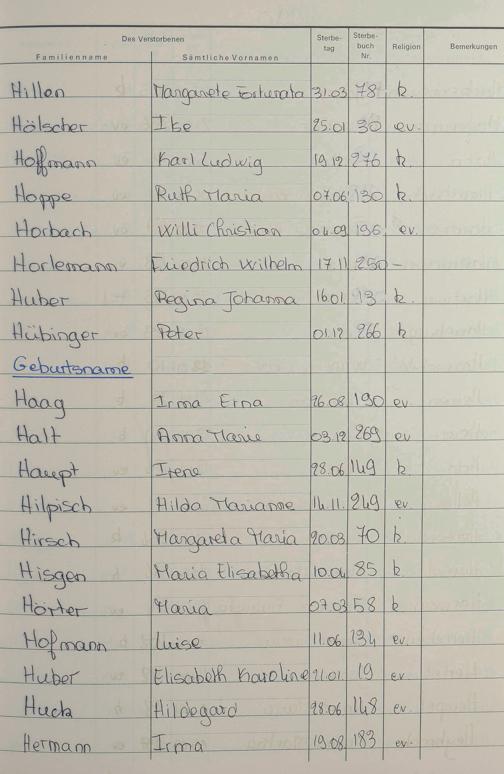 Des Verstorbenen
Familienname Sämtliche Vornamen Sterbe-tag Sterbe-buch Nr. Religion Bemerkungen
Hillen Margarete Fortunata 31.03 78 k.
Hölscher Ilse 25.01 30 ev.
Hoffmann Karl Ludwig 19.12 276 k.
Hoppe Ruth Maria 07.06 130 k.
Horbach Willi Christian 04.09 196 ev.
Horlemann Friedrich Wilhelm 17.11 250 -
Huber Regina Johanna 16.01 13 k.
Hübinger Peter 01.12 266 k
Geburtsname
Haag Irma Erna 26.08 190 ev.
Halt Anna Marie 03.12 269 ev
Haupt Irene 28.06 149 k.
Hilpisch Hilda Marianne 14.11. 249 ev.
Hirsch Margareta Maria 20.03 70 k.
Hisgen Maria Elisabetha 10.04 85 k
Hörter Maria 07.03 58 k
Hofmann Luise 11.06 134 ev.
Huber Elisabeth Karoline 21.01 19 ev
Huck Hildegard 28.06 148 ev.
Hermann Irma 19.08 183 ev.